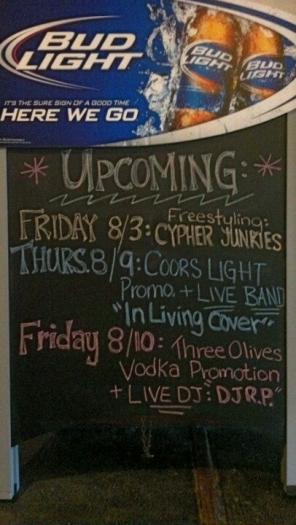 BUD
LIGHT
BUD
LIGHT
BUD
LIGHT
IT'S THE SURE SIGN OF A GOOD TIME
HERE WE GO
UPCOMING:
FRIDAY 8/3: Freestyling:
CYPHER JUNKIES
THURS. 8/9: COORS LIGHT
Promo. + LIVE BAND
"In Living Cover"
Friday 8/10: Three Olives
Vodka Promotion
+ LIVE DJ: "DJ R.P."